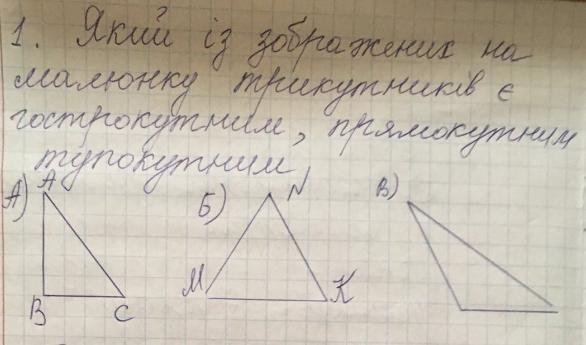 1. Який із зображених на
малюнку трикутників є
гострокутним, прямокутним
тупокутним
А) A B C
Б) M N K
В)